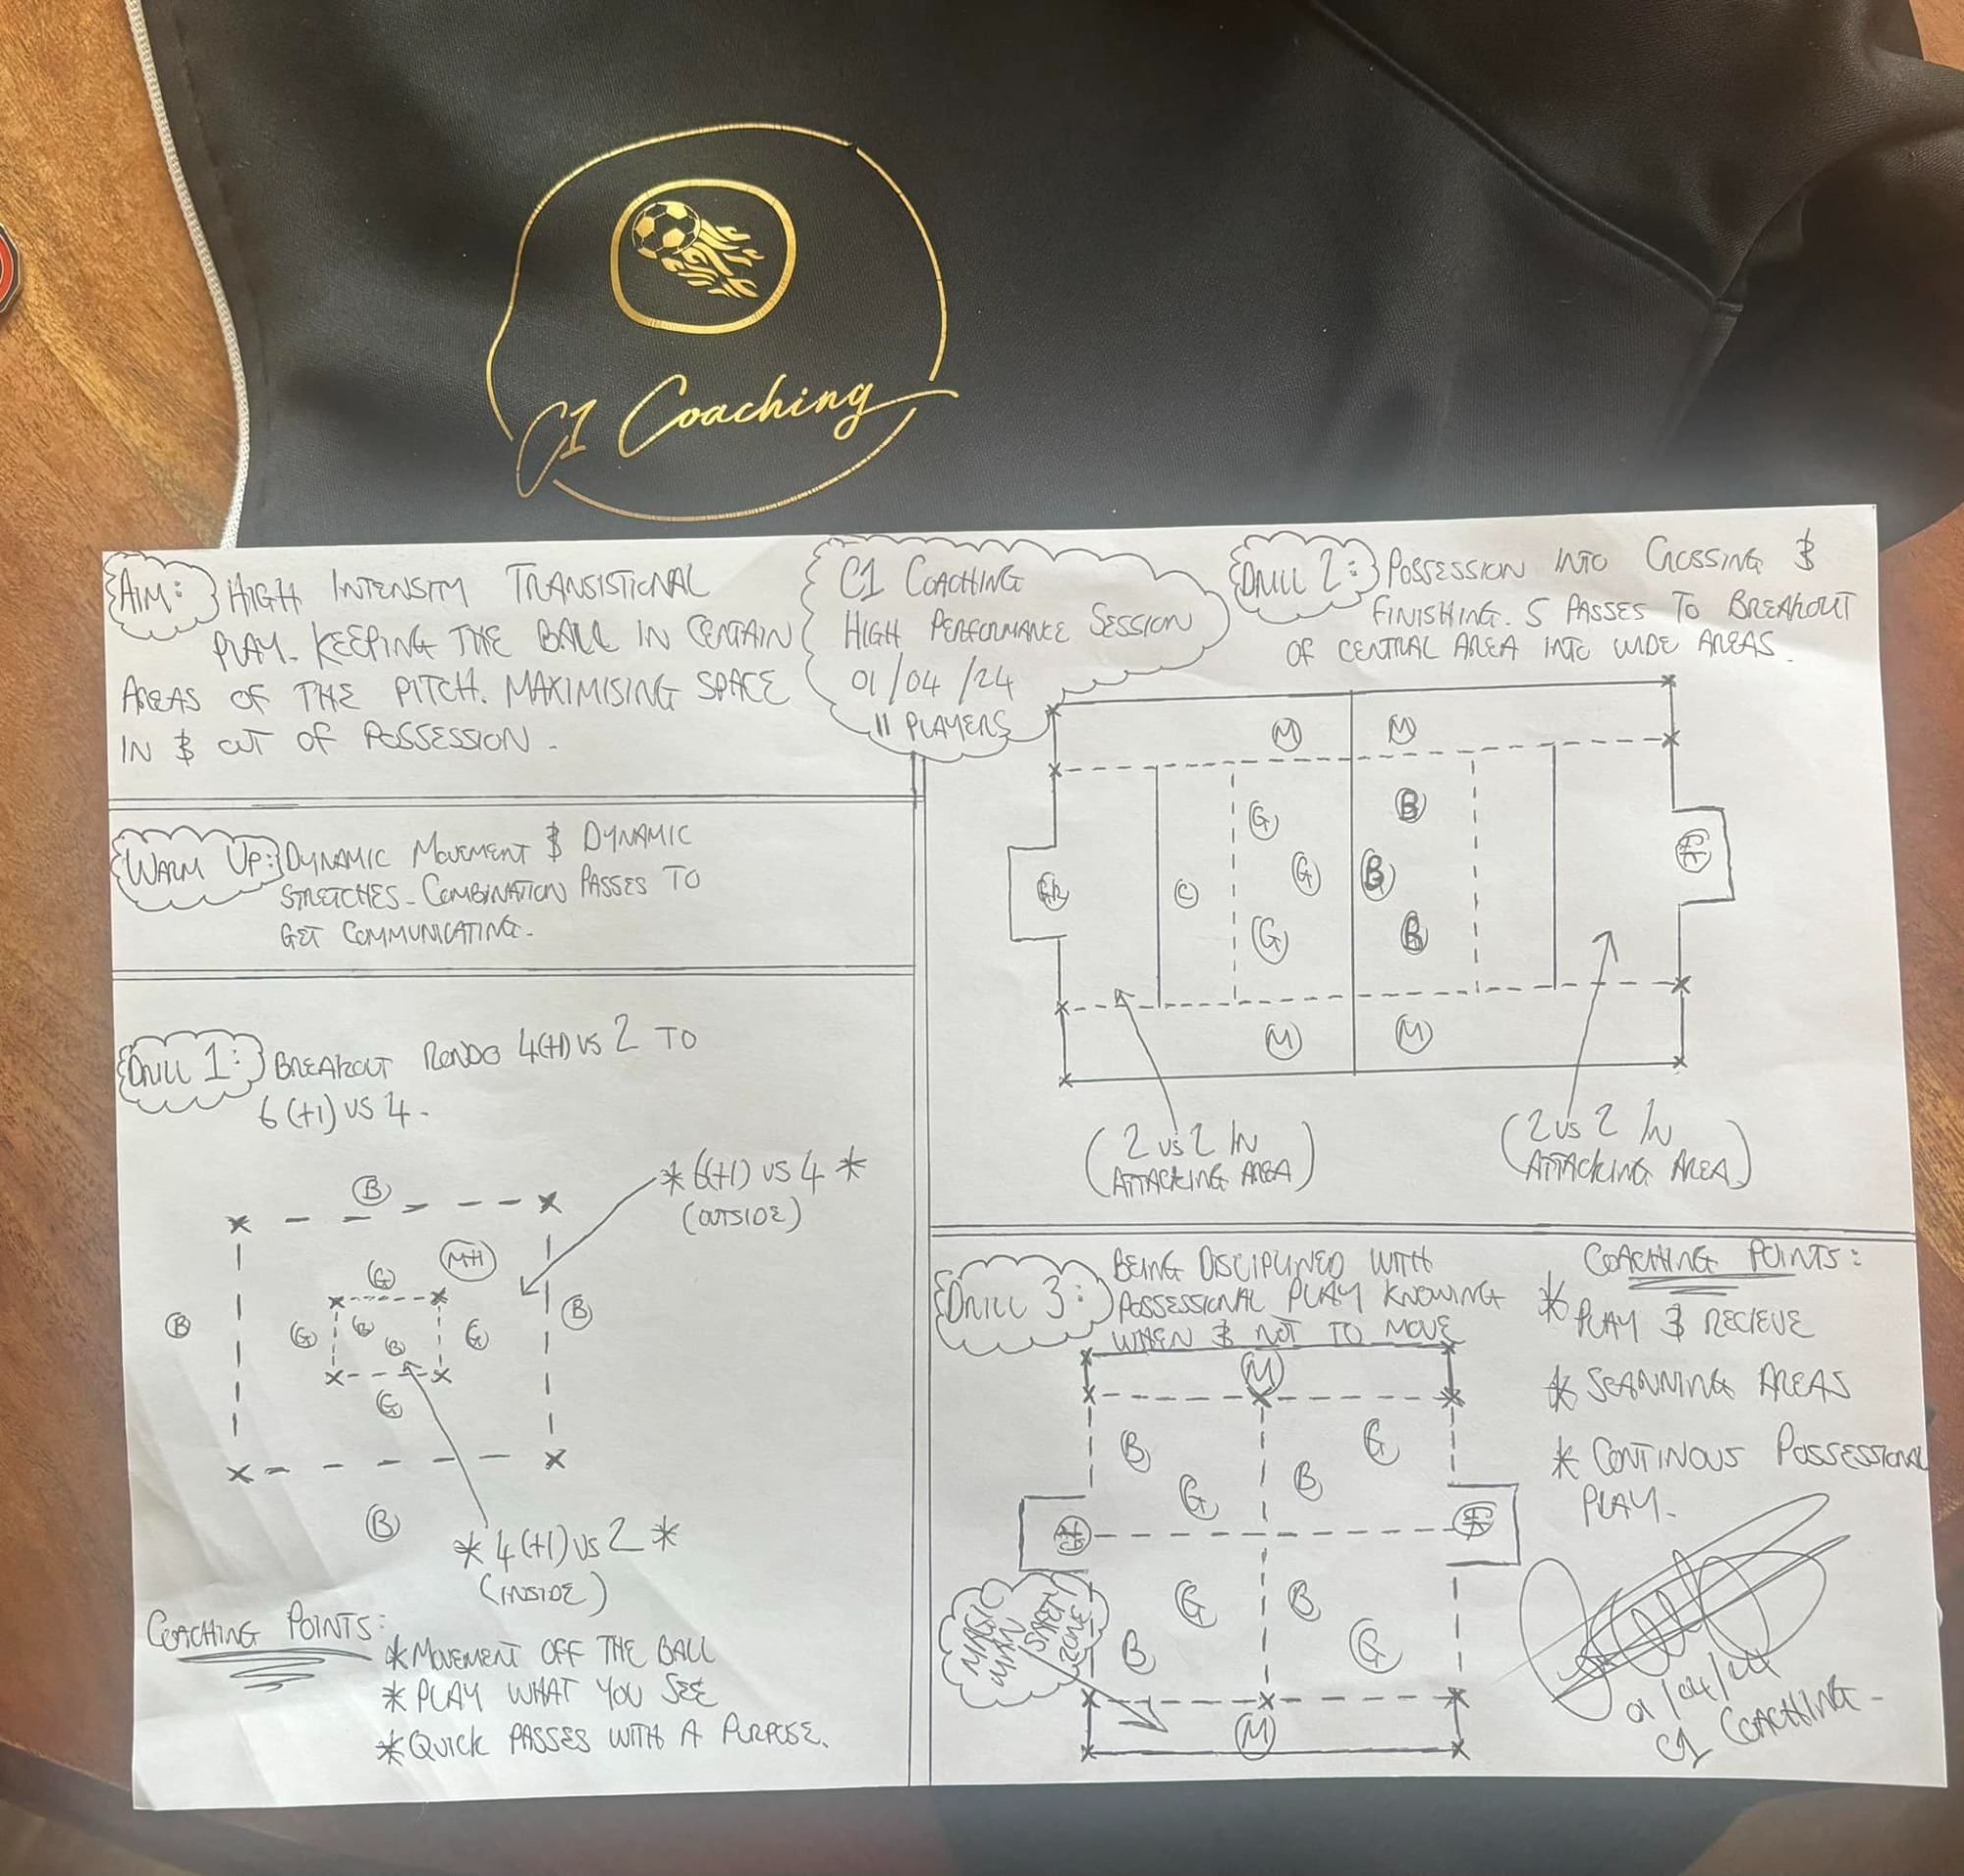 C1 Coaching
AIM: HIGH INTENSITY TRANSISTIONAL
PLAY. KEEPING THE BALL IN CERTAIN
AREAS OF THE PITCH. MAXIMISING SPACE
IN & OUT OF POSSESSION.
C1 COACHING
HIGH PERFORMANCE SESSION
01/04/24
11 PLAYERS
WARM UP: DYNAMIC MOVEMENT & DYNAMIC
STRETCHES. COMBINATION PASSES TO
GET COMMUNICATING.
DRILL 1: BREAKOUT RONDO 4(+1) VS 2 TO
6(+1) VS 4.
* 6(+1) VS 4 *
(OUTSIDE)
B
MH
G
B
B
G
B
G
B
G
B
* 4(+1) VS 2 *
(INSIDE)
COACHING POINTS:
* MOVEMENT OFF THE BALL
* PLAY WHAT YOU SEE
* QUICK PASSES WITH A PURPOSE.
DRILL 2: POSSESSION INTO CROSSING &
FINISHING. 5 PASSES TO BREAKOUT
OF CENTRAL AREA INTO WIDE AREAS.
M M
G B
GK C G B
G B
M M
(2 VS 2 IN
ATTACKING AREA)
(2 VS 2 IN
ATTACKING AREA)
DRILL 3: BEING DISCIPLINED WITH
POSSESSIONAL PLAY KNOWING
WHEN & NOT TO MOVE
M
B G
G B
G B
B G
M
MAGIC
MAN
SAFETY
ZONE
COACHING POINTS:
* PLAY & RECIEVE
* SCANNING AREAS
* CONTINOUS POSSESSIONAL
PLAY.
01/04/24
C1 COACHING.